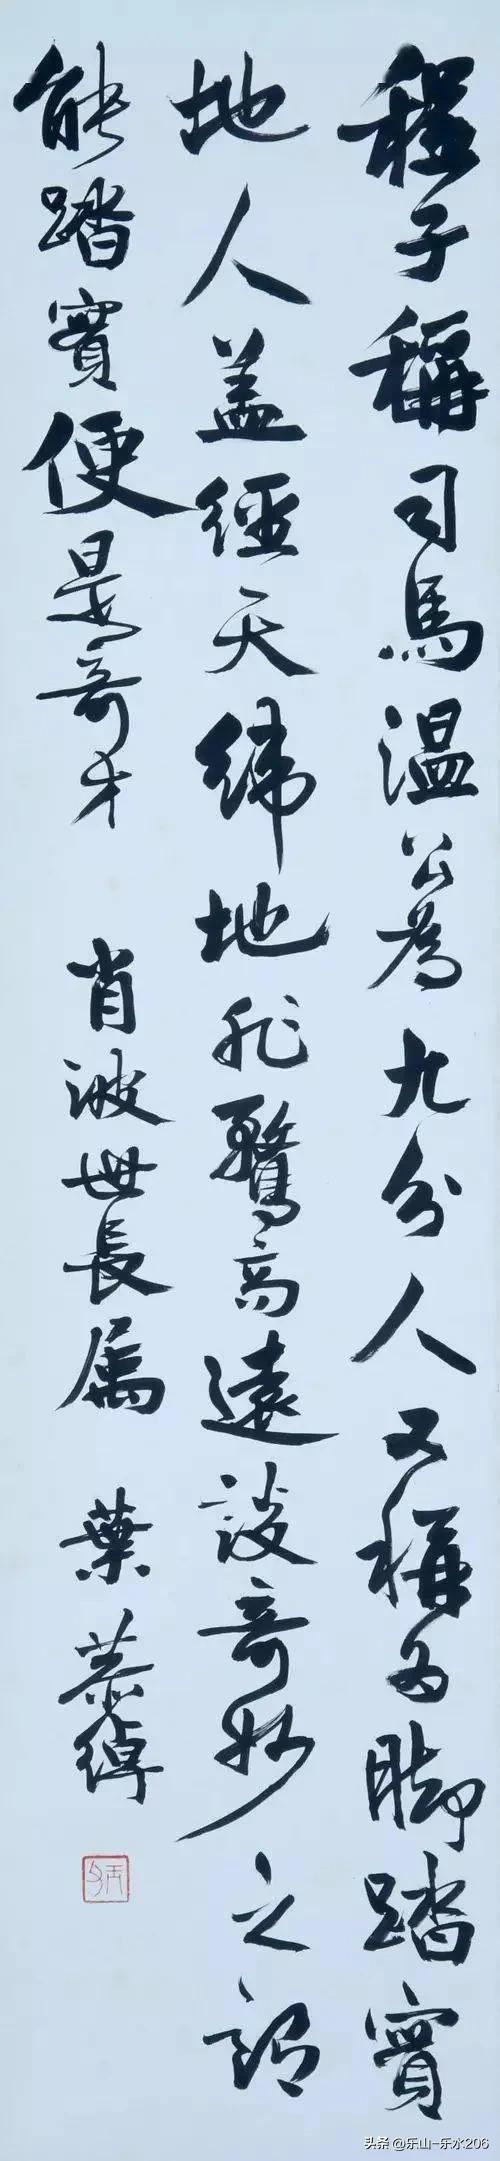 程子稱司馬温公為九分人又稱為脚踏實
地人蓋經天緯地非騖高遠談奇妙之謂
能踏實便是奇才
肖波世長属
葉恭綽
头条 @乐山-乐水206